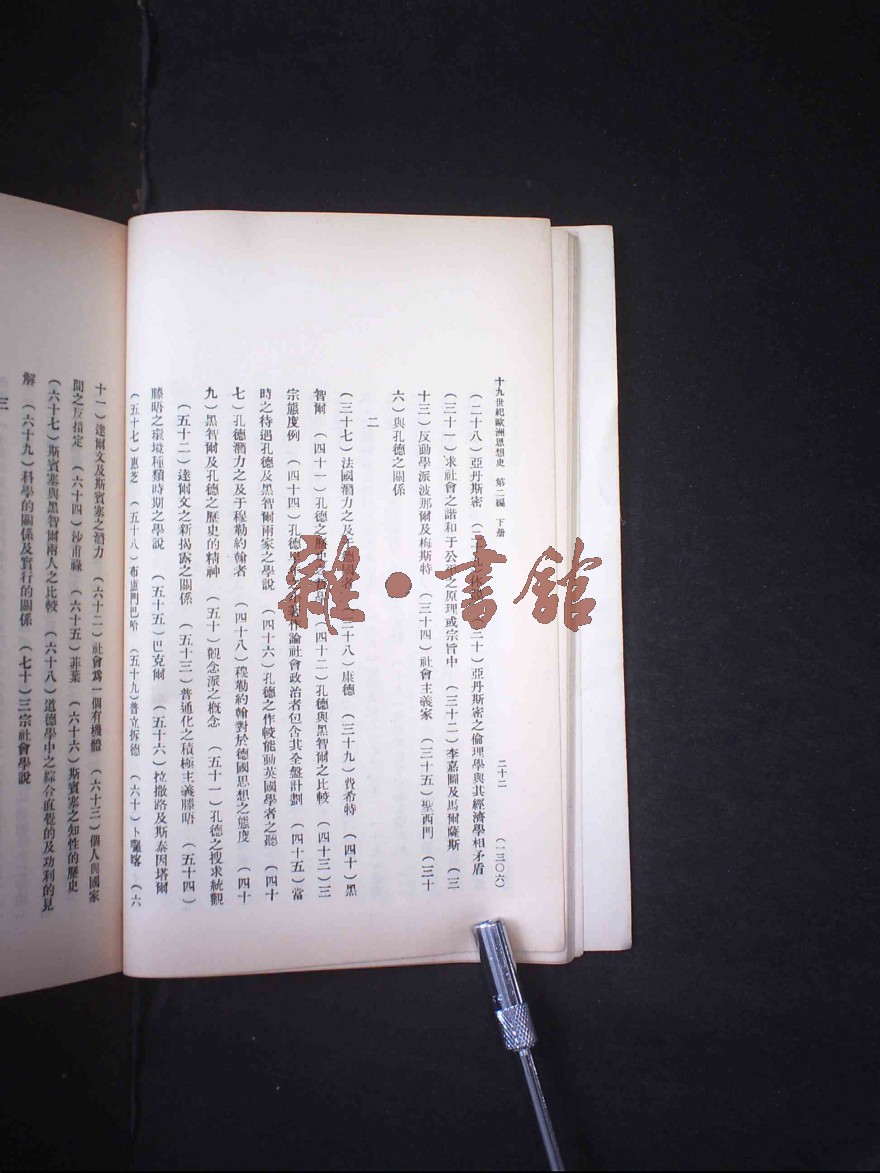 十九世紀歐洲思想史　第二編　下册　二十二　（一三〇六）
（二十八）亞丹斯密　（二十九）　（三十）亞丹斯密之倫理學與其經濟學相矛盾
（三十一）求社會之諧和于公平之原理或宗旨中　（三十二）李嘉圖及馬爾薩斯　（三
十三）反動學派波那爾及梅斯特　（三十四）社會主義家　（三十五）聖西門　（三十
六）與孔德之關係
二
（三十七）法國潛力之及　（三十八）康德　（三十九）費希特　（四十）黑
智爾　（四十一）孔德之　（四十二）孔德與黑智爾之比較　（四十三）三
宗態度例　（四十四）孔德　論社會政治者包含其全盤計劃　（四十五）當
時之待遇孔德及黑智爾兩家之學說　（四十六）孔德之作較能動英國學者之聽　（四十
七）孔德潛力之及于穆勒約翰者　（四十八）穆勒約翰對於德國思想之態度　（四十
九）黑智爾及孔德之歷史的精神　（五十）觀念派之概念　（五十一）孔德之搜求統觀
（五十二）達爾文之新揭露之關係　（五十三）普通化之積極主義滕晤　（五十四）
滕晤之環境種類時期之學說　（五十五）巴克爾　（五十六）拉撒路及斯泰因塔爾
（五十七）惠芝　（五十八）布盧門巴哈　（五十九）普立拆德　（六十）卜驪喀　（六
十一）達爾文及斯賓塞之潛力　（六十二）社會爲一個有機體　（六十三）個人與國家
間之反指定　（六十四）沙甫祿　（六十五）菲葉　（六十六）斯賓塞之知性的歷史
（六十七）斯賓塞與黑智爾兩人之比較　（六十八）道德學中之綜合直覺的及功利的見
解　（六十九）科學的關係及實行的關係　（七十）三宗社會學說
三
雜·書館